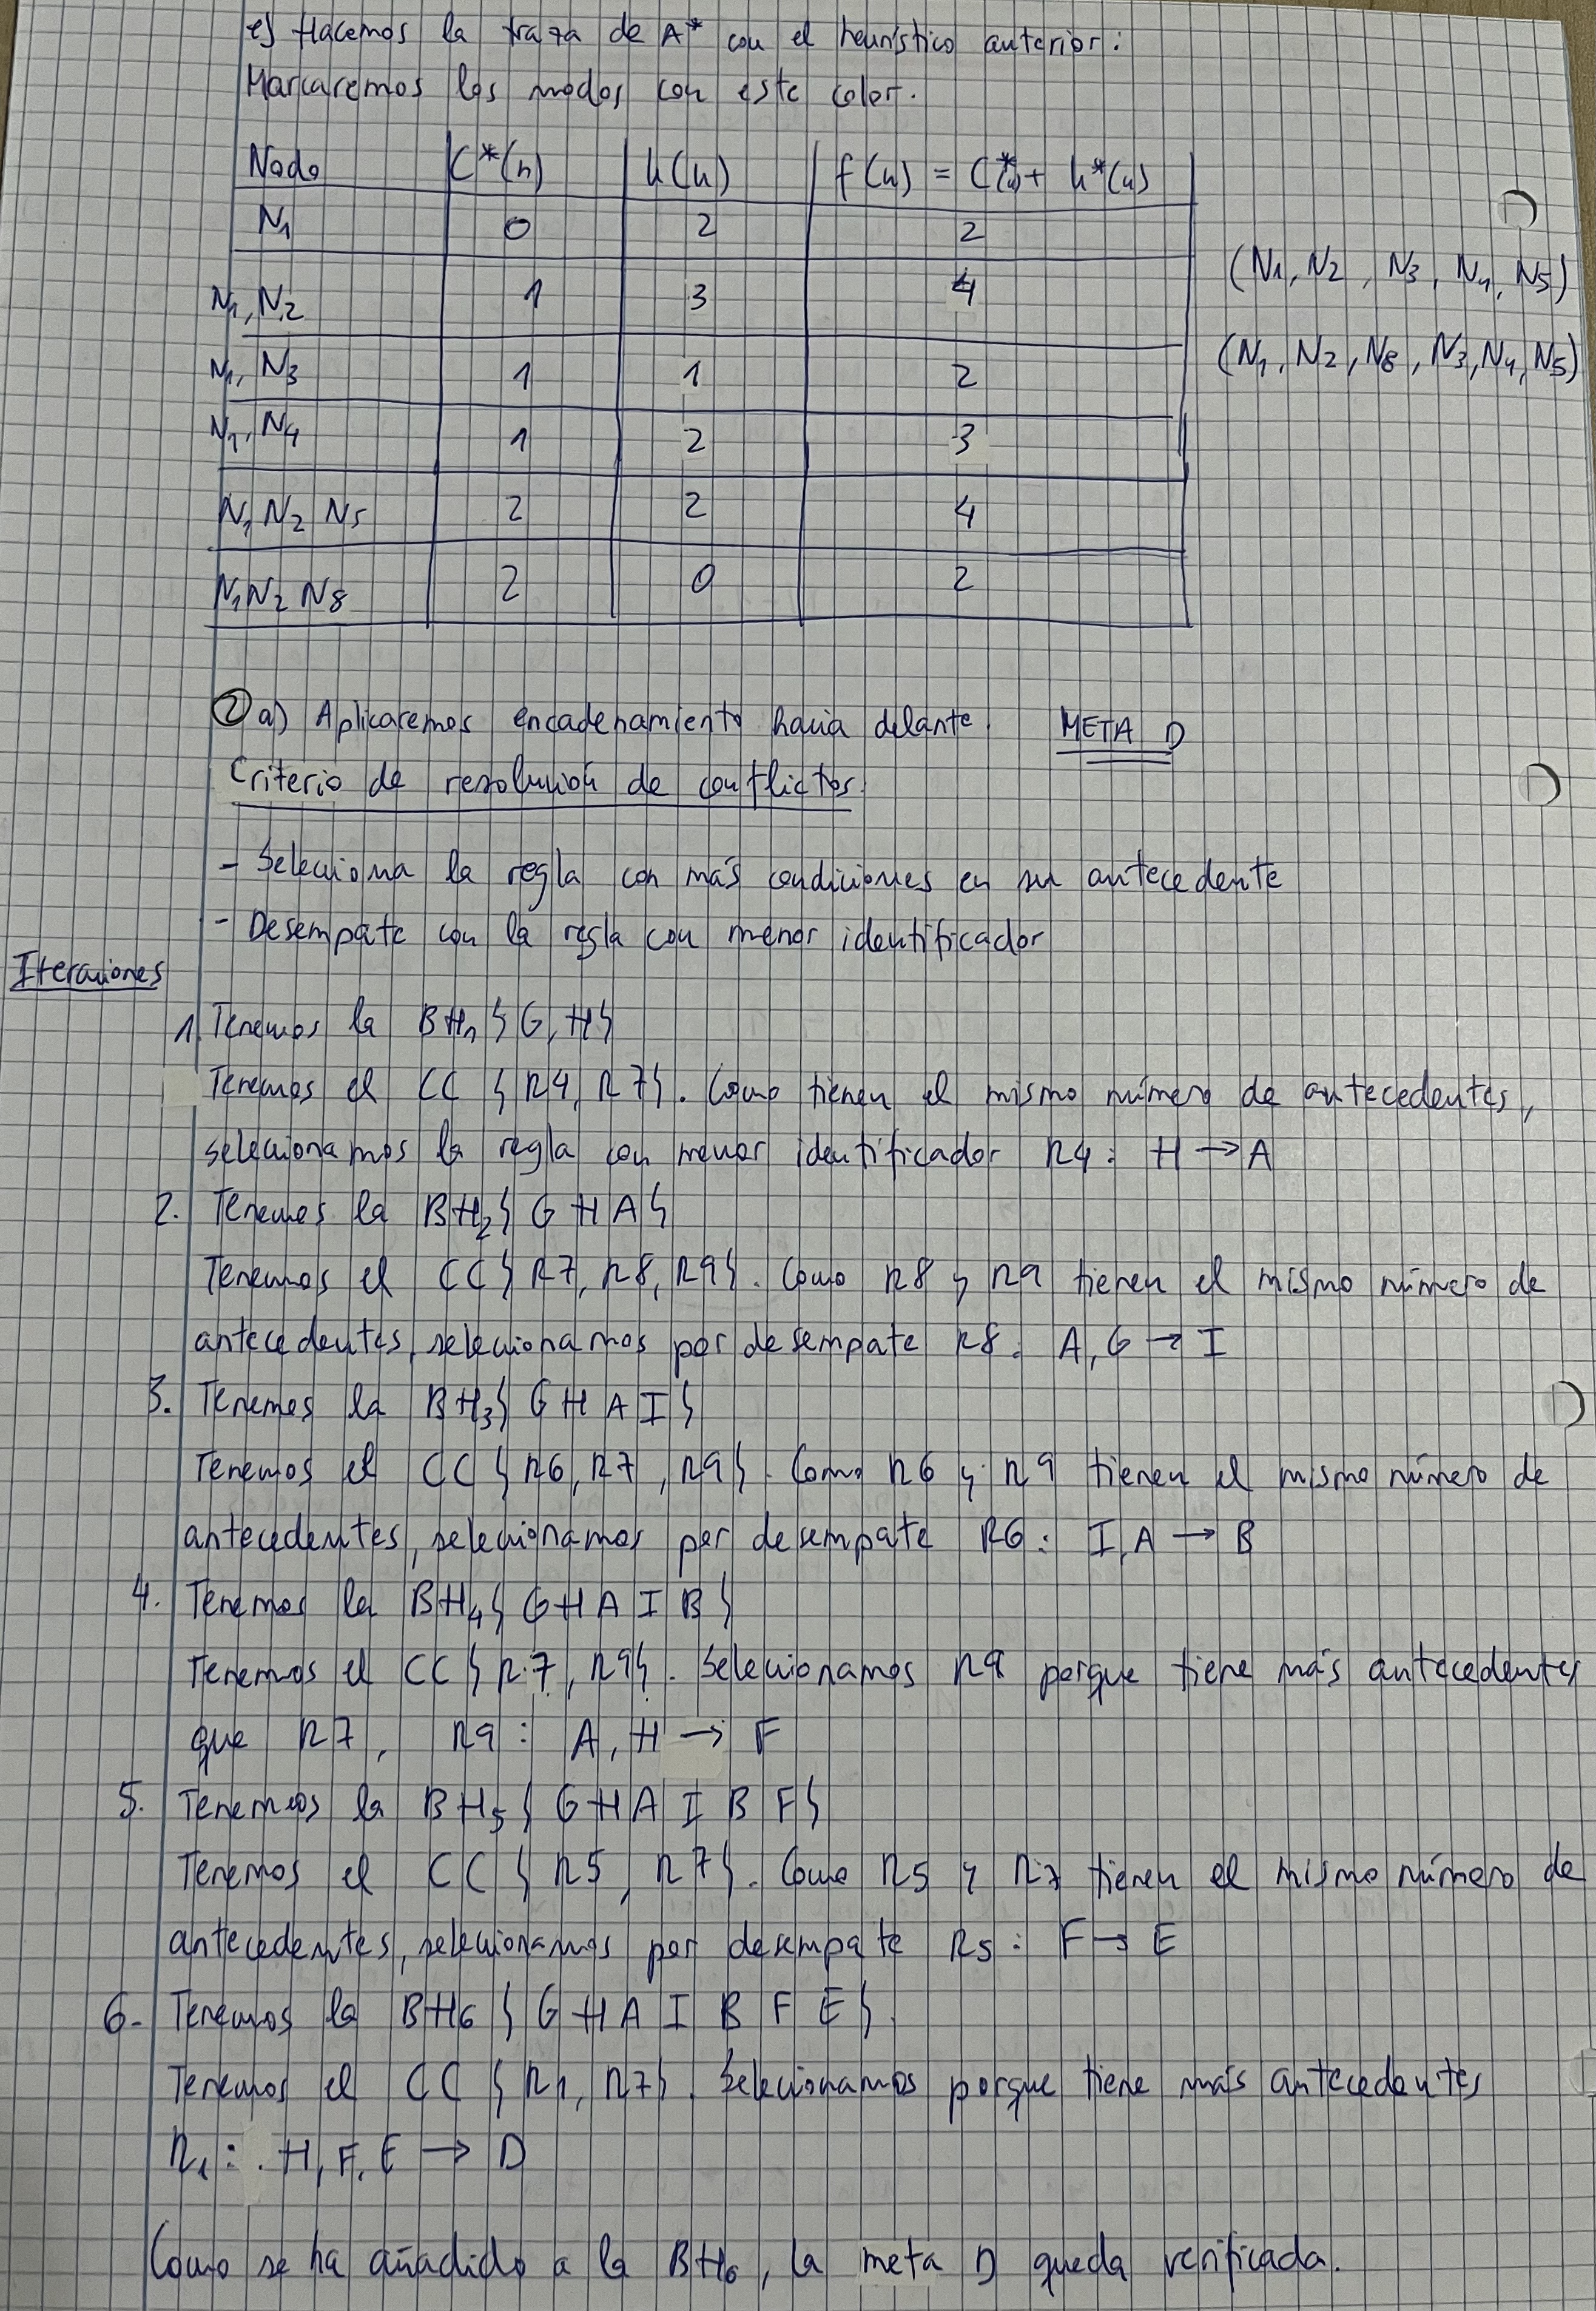 e) Hacemos la traza de A* con el heurístico anterior:
Marcaremos los nodos con este color.
Nodo C*(n) h(n) f(n) = C*(n) + h*(n)
N1 0 2 2
N1, N2 1 3 4
(N1, N2, N3, N4, N5)
N1, N3 1 1 2
(N1, N2, N8, N3, N4, N5)
N1, N4 1 2 3
N1 N2 N5 2 2 4
N1 N2 N8 2 0 2
② a) Aplicaremos encadenamiento hacia delante. META D
Criterio de resolución de conflictos:
- Selecciona la regla con más condiciones en su antecedente
- Desempate con la regla con menor identificador
Iteraciones
1. Tenemos la BH1 { G, H}
Tenemos el CC { R4, R7}. Como tienen el mismo número de antecedentes,
selecionamos la regla con menor identificador R4: H → A
2. Tenemos la BH2 { G H A}
Tenemos el CC { R7, R8, R9}. Como R8 y R9 tienen el mismo número de
antecedentes, selecionamos por desempate R8: A, G → I
3. Tenemos la BH3 { G H A I}
Tenemos el CC { R6, R7, R9}. Como R6 y R9 tienen el mismo número de
antecedentes, selecionamos por desempate R6: I, A → B
4. Tenemos la BH4 { G H A I B}
Tenemos el CC { R7, R9}. Selecionamos R9 porque tiene más antecedentes
que R7, R9: A, H → F
5. Tenemos la BH5 { G H A I B F}
Tenemos el CC { R5, R7}. Como R5 y R7 tienen el mismo número de
antecedentes, selecionamos por desempate R5: F → E
6- Tenemos la BH6 { G H A I B F E}.
Tenemos el CC { R1, R7}. Selecionamos porque tiene más antecedentes
R1: H, F, E → D
Como se ha añadido a la BH6, la meta D queda verificada.